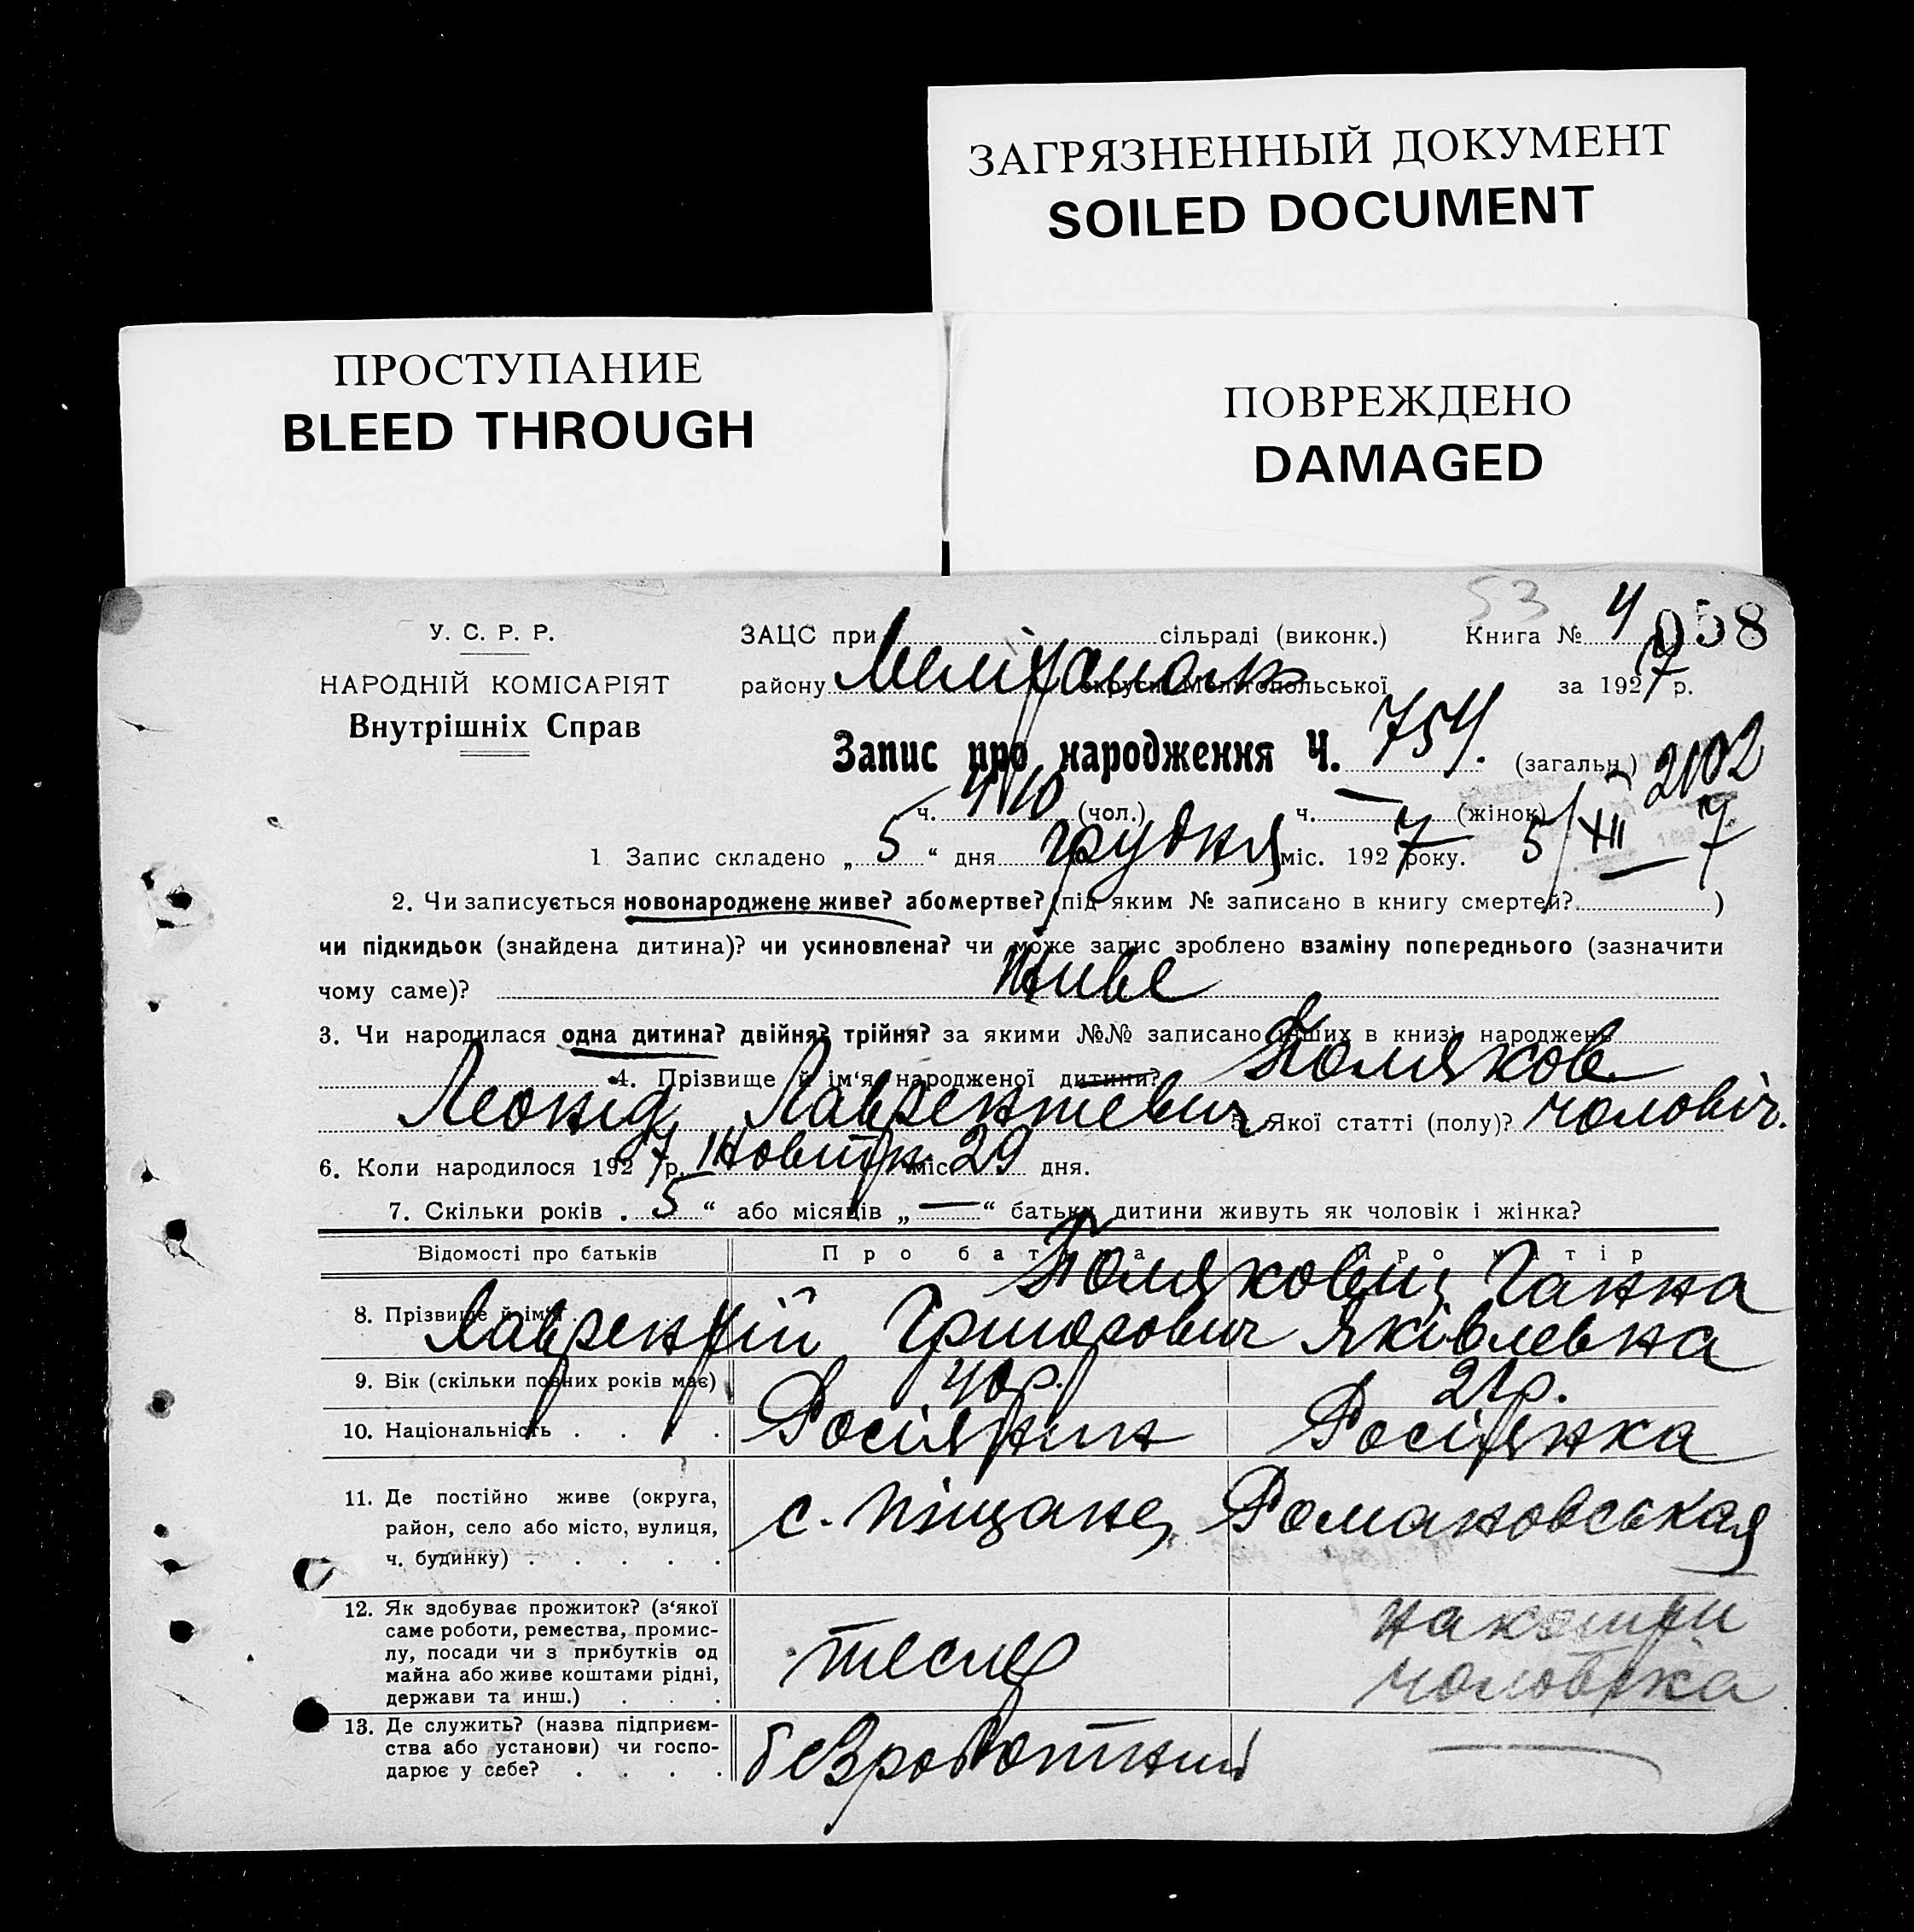 ЗАГРЯЗНЕННЫЙ ДОКУМЕНТ
SOILED DOCUMENT
ПРОСТУПАНИЕ
BLEED THROUGH
ПОВРЕЖДЕНО
DAMAGED
53
У. С. Р. Р.
НАРОДНІЙ КОМІСАРІЯТ
Внутрішніх Справ
ЗАЦС при сільраді (виконк.) Книга № 4 058
району округи Мелітопольської за 1927 р.
Запис про народження Ч. 754. (загальн.) 2102
ч. 410 (чол.) ч. — (жінок)
1 Запис складено „ 5 “ дня грудня міс. 1927 року. 5/XII 7
2. Чи записується новонароджене живе? або мертве? (під яким № записано в книгу смертей? )
чи підкидьок (знайдена дитина)? чи усиновлена? чи може запис зроблено взаміну попереднього (зазначити
чому саме)? живе
3. Чи народилася одна дитина? двійня? трійня? за якими №№ записано інших в книзі народжень
4. Прізвище й ім‘я народженої дитини? Поляков
Леонід Лаврентьевич 5. Якої статті (полу)? чоловіч.
6. Коли народилося 1927 р. міс. 29 дня.
7. Скільки років „ 5 “ або місяців „ — “ батьки дитини живуть як чоловік і жінка?
Відомості про батьків Про батька Про матір
8. Прізвище й ім‘я Полякови Ганна
Лаврентій Григорович Яківлевна
9. Вік (скільки повних років має) 40 р. 21 р.
10. Національність Росіянин Росіянка
11. Де постійно живе (округа,
район, село або місто, вулиця,
ч. будинку) с. Піщане, Романовская
12. Як здобуває прожиток? (з‘якої
саме роботи, ремества, промис-
лу, посади чи з прибутків од
майна або живе коштами рідні,
держави та инш.) тесля
чоловіка
13. Де служить? (назва підприєм-
ства або установи) чи госпо-
дарює у себе? безработний —